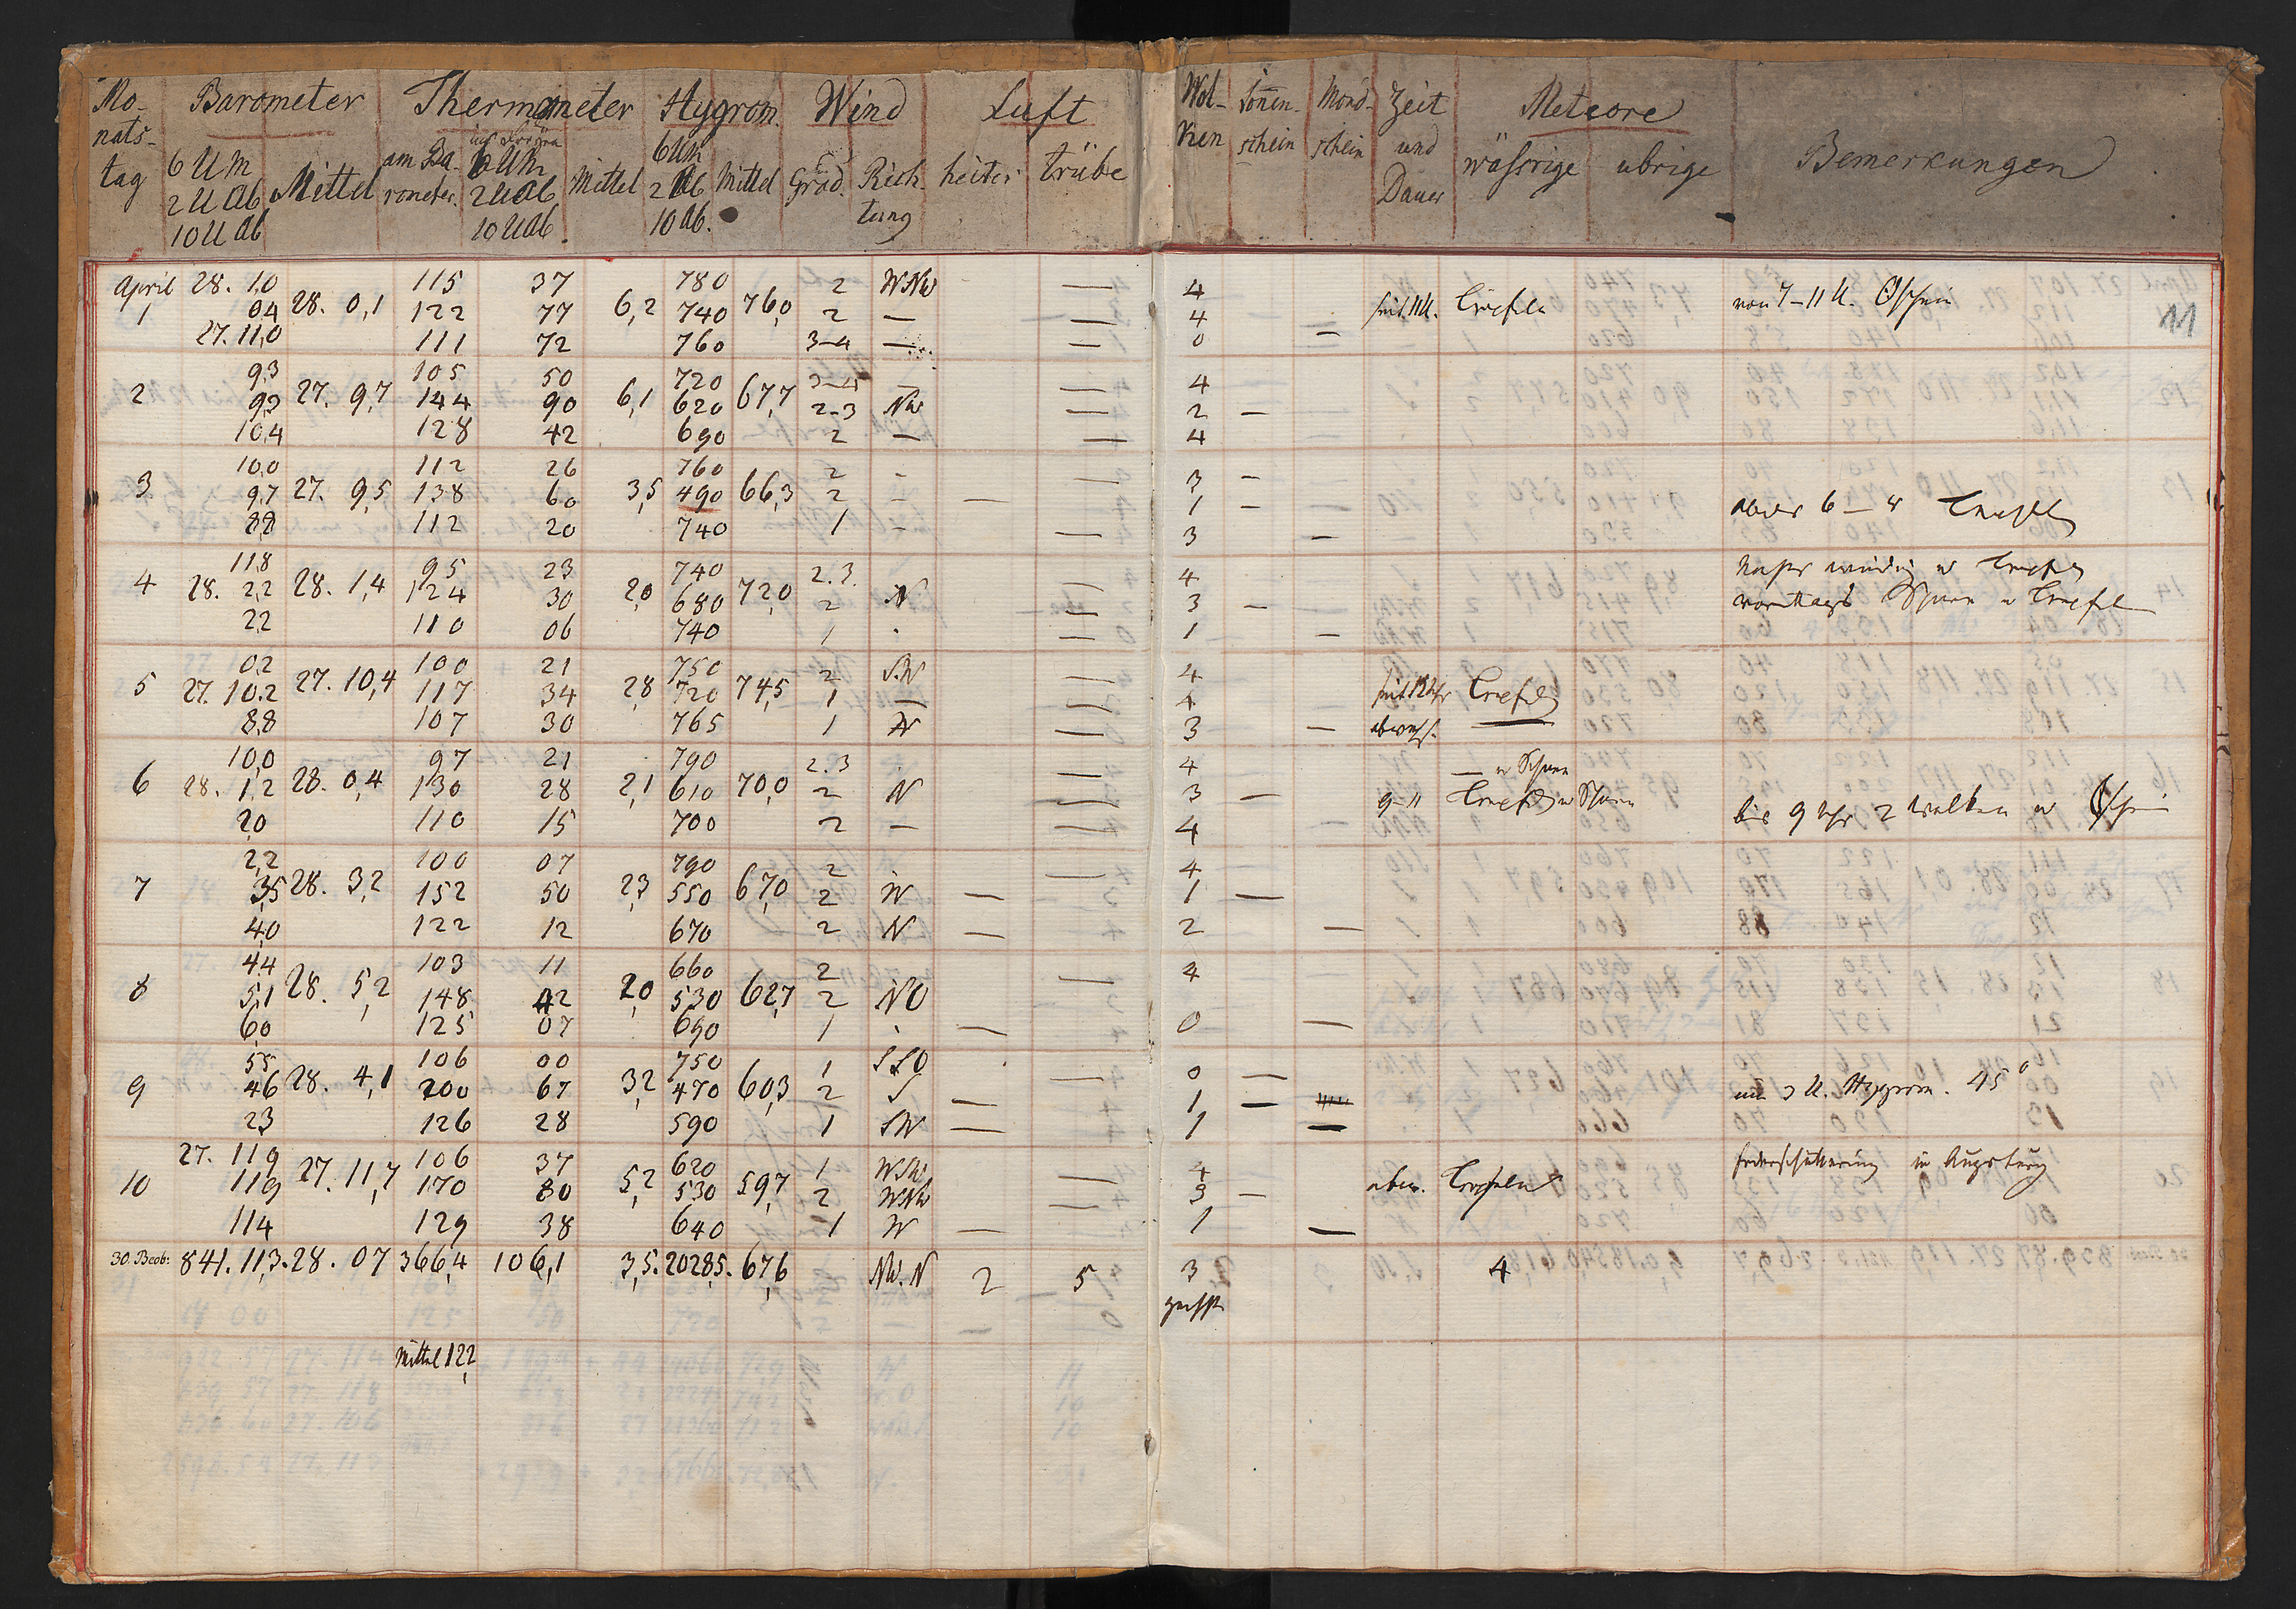 Mo- Barometer Thermometer Hygrom. Wind Luft Wol- Sonnen- Mond- Zeit Meteore
nats- am Ba- 6 UM 6 UM ken schein schein und wäßrige übrige Bemerkungen
tag 6 UM Mittel rometer. 2 U Ab Mittel 2 Ab Mittel Grad. Rich- heiter trübe Dauer
2 U Ab 10 U Ab. 10 Ab. tung
10 U Ab
April 28. 1,0 115 37 780 2 WNW — 4
1 0,4 28. 0,1 122 77 6,2 740 76,0 2 — — 4 Triefeln von 7-11 U. 11
27. 11,0 111 72 760 3-4 — — 0 —
9,3 105 50 720 — 4
2 9,3 27. 9,7 144 90 6,1 620 67,7 2-3 NW — 2 —
10,4 128 42 690 2 — — 4
10,0 112 26 760 2 - — 3 —
3 9,7 27. 9,5 138 60 3,5 490 66,3 2 - — 1 — —
8,8 112 20 740 1 - — 3 —
11,8 95 23 740 2.3. 4
4 28. 2,2 28. 1,4 124 30 2,0 680 72,0 2 N — 3 —
2,2 110 06 740 1 . — 1 —
0,2 100 21 750 2 S.W — 4
5 27. 10,2 27. 10,4 117 34 2,8 720 74,5 1 — — 4
8,8 107 30 765 1 — 3 — —
10,0 97 21 790 2.3 4 —
6 28. 1,2 28. 0,4 130 28 2,1 610 70,0 2 N — 3 — 9-11 bis 9 Uhr 2 Wolken
2,0 110 15 700 2 — — 4
2,2 100 07 790 2 — 4
7 3,5 28. 3,2 152 50 2,3 550 67,0 2 W — 1 —
4,0 122 12 670 2 N — 2 —
4,4 103 11 660 2 — 4
8 5,1 28. 5,2 148 42 2,0 530 62,7 2 NO
6,0 125 07 690 1 . — 0 —
5,5 106 00 750 1 SSO — 0 —
9 4,6 28. 4,1 200 67 3,2 470 60,3 2 S — 1 — um 3 U. Hygrom. 45°
2,3 126 28 590 1 SW — 1 —
27. 11,9 106 37 620 1 — 4 in Augsburg
10 11,9 27. 11,7 170 80 5,2 530 59,7 2 WNW — 3 —
11,4 129 38 640 1 W — 1 —
30. Beob: 841. 11,3. 28. 07 366,4 106,1 3,5. 2028,5. 67,6 NW. N 2 5 3 4
Mittel 12,2